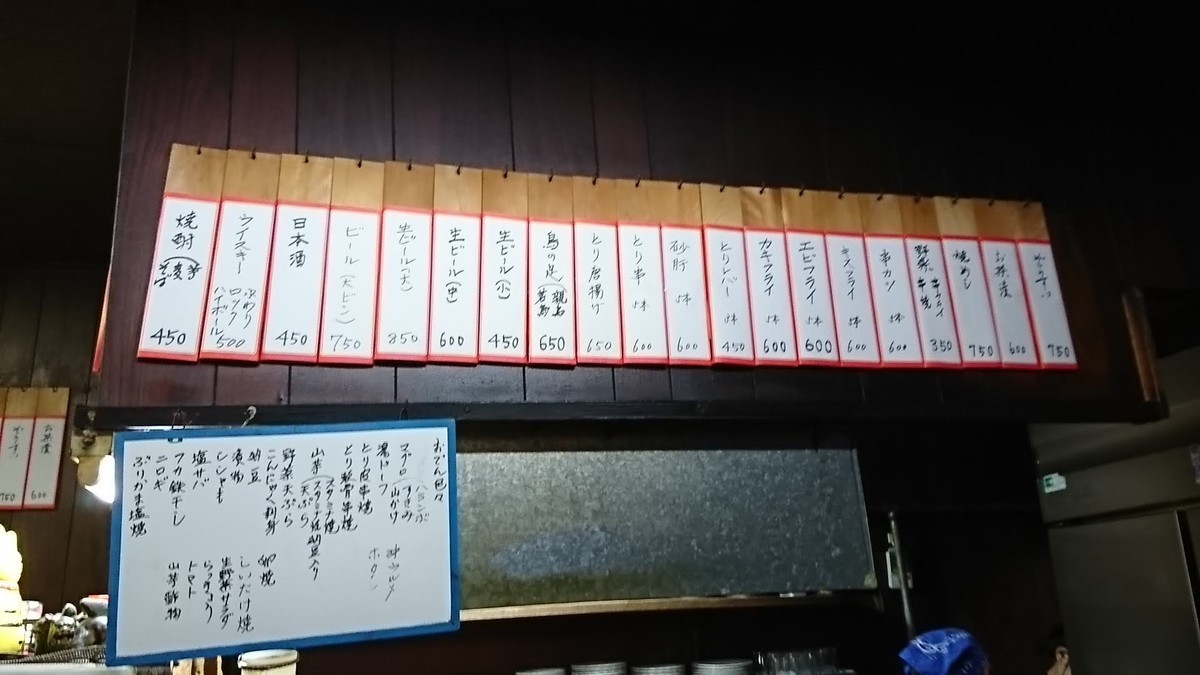 ぞうすい 750
お茶漬 600
焼めし 750
野菜 串フライ 串焼 350
串カツ 5本 600
キスフライ 5本 600
エビフライ 5本 600
カキフライ 5本 600
とりレバー 5本 450
砂肝 5本 600
とり串 5本 600
とり唐揚げ 650
鳥の足 (親鳥 若鳥) 650
生ビール(小) 450
生ビール(中) 600
生ビール(大) 850
ビール(大ビン) 750
日本酒 450
ウイスキー 水わり ロック ハイボール 500
焼酎 (芋 麦 そば) 450
おでん色々
ハランボ
マグロ(すきみ 山かけ
湯ドーフ
とり皮串焼
とり軟骨串焼
山芋(スタミナ焼 スタミナ焼納豆入り 天ぷら
野菜天ぷら
こんにゃく刺身
納豆
漬物
シシャモ
塩サバ
フカ鉄干し
ニロギ
ぶりかま塩焼
沖ウルメ
ホタテ
卵焼
しいたけ焼
生野菜サラダ
らっきょう
トマト
山芋鉄物
お茶漬 600
ぞうすい 750